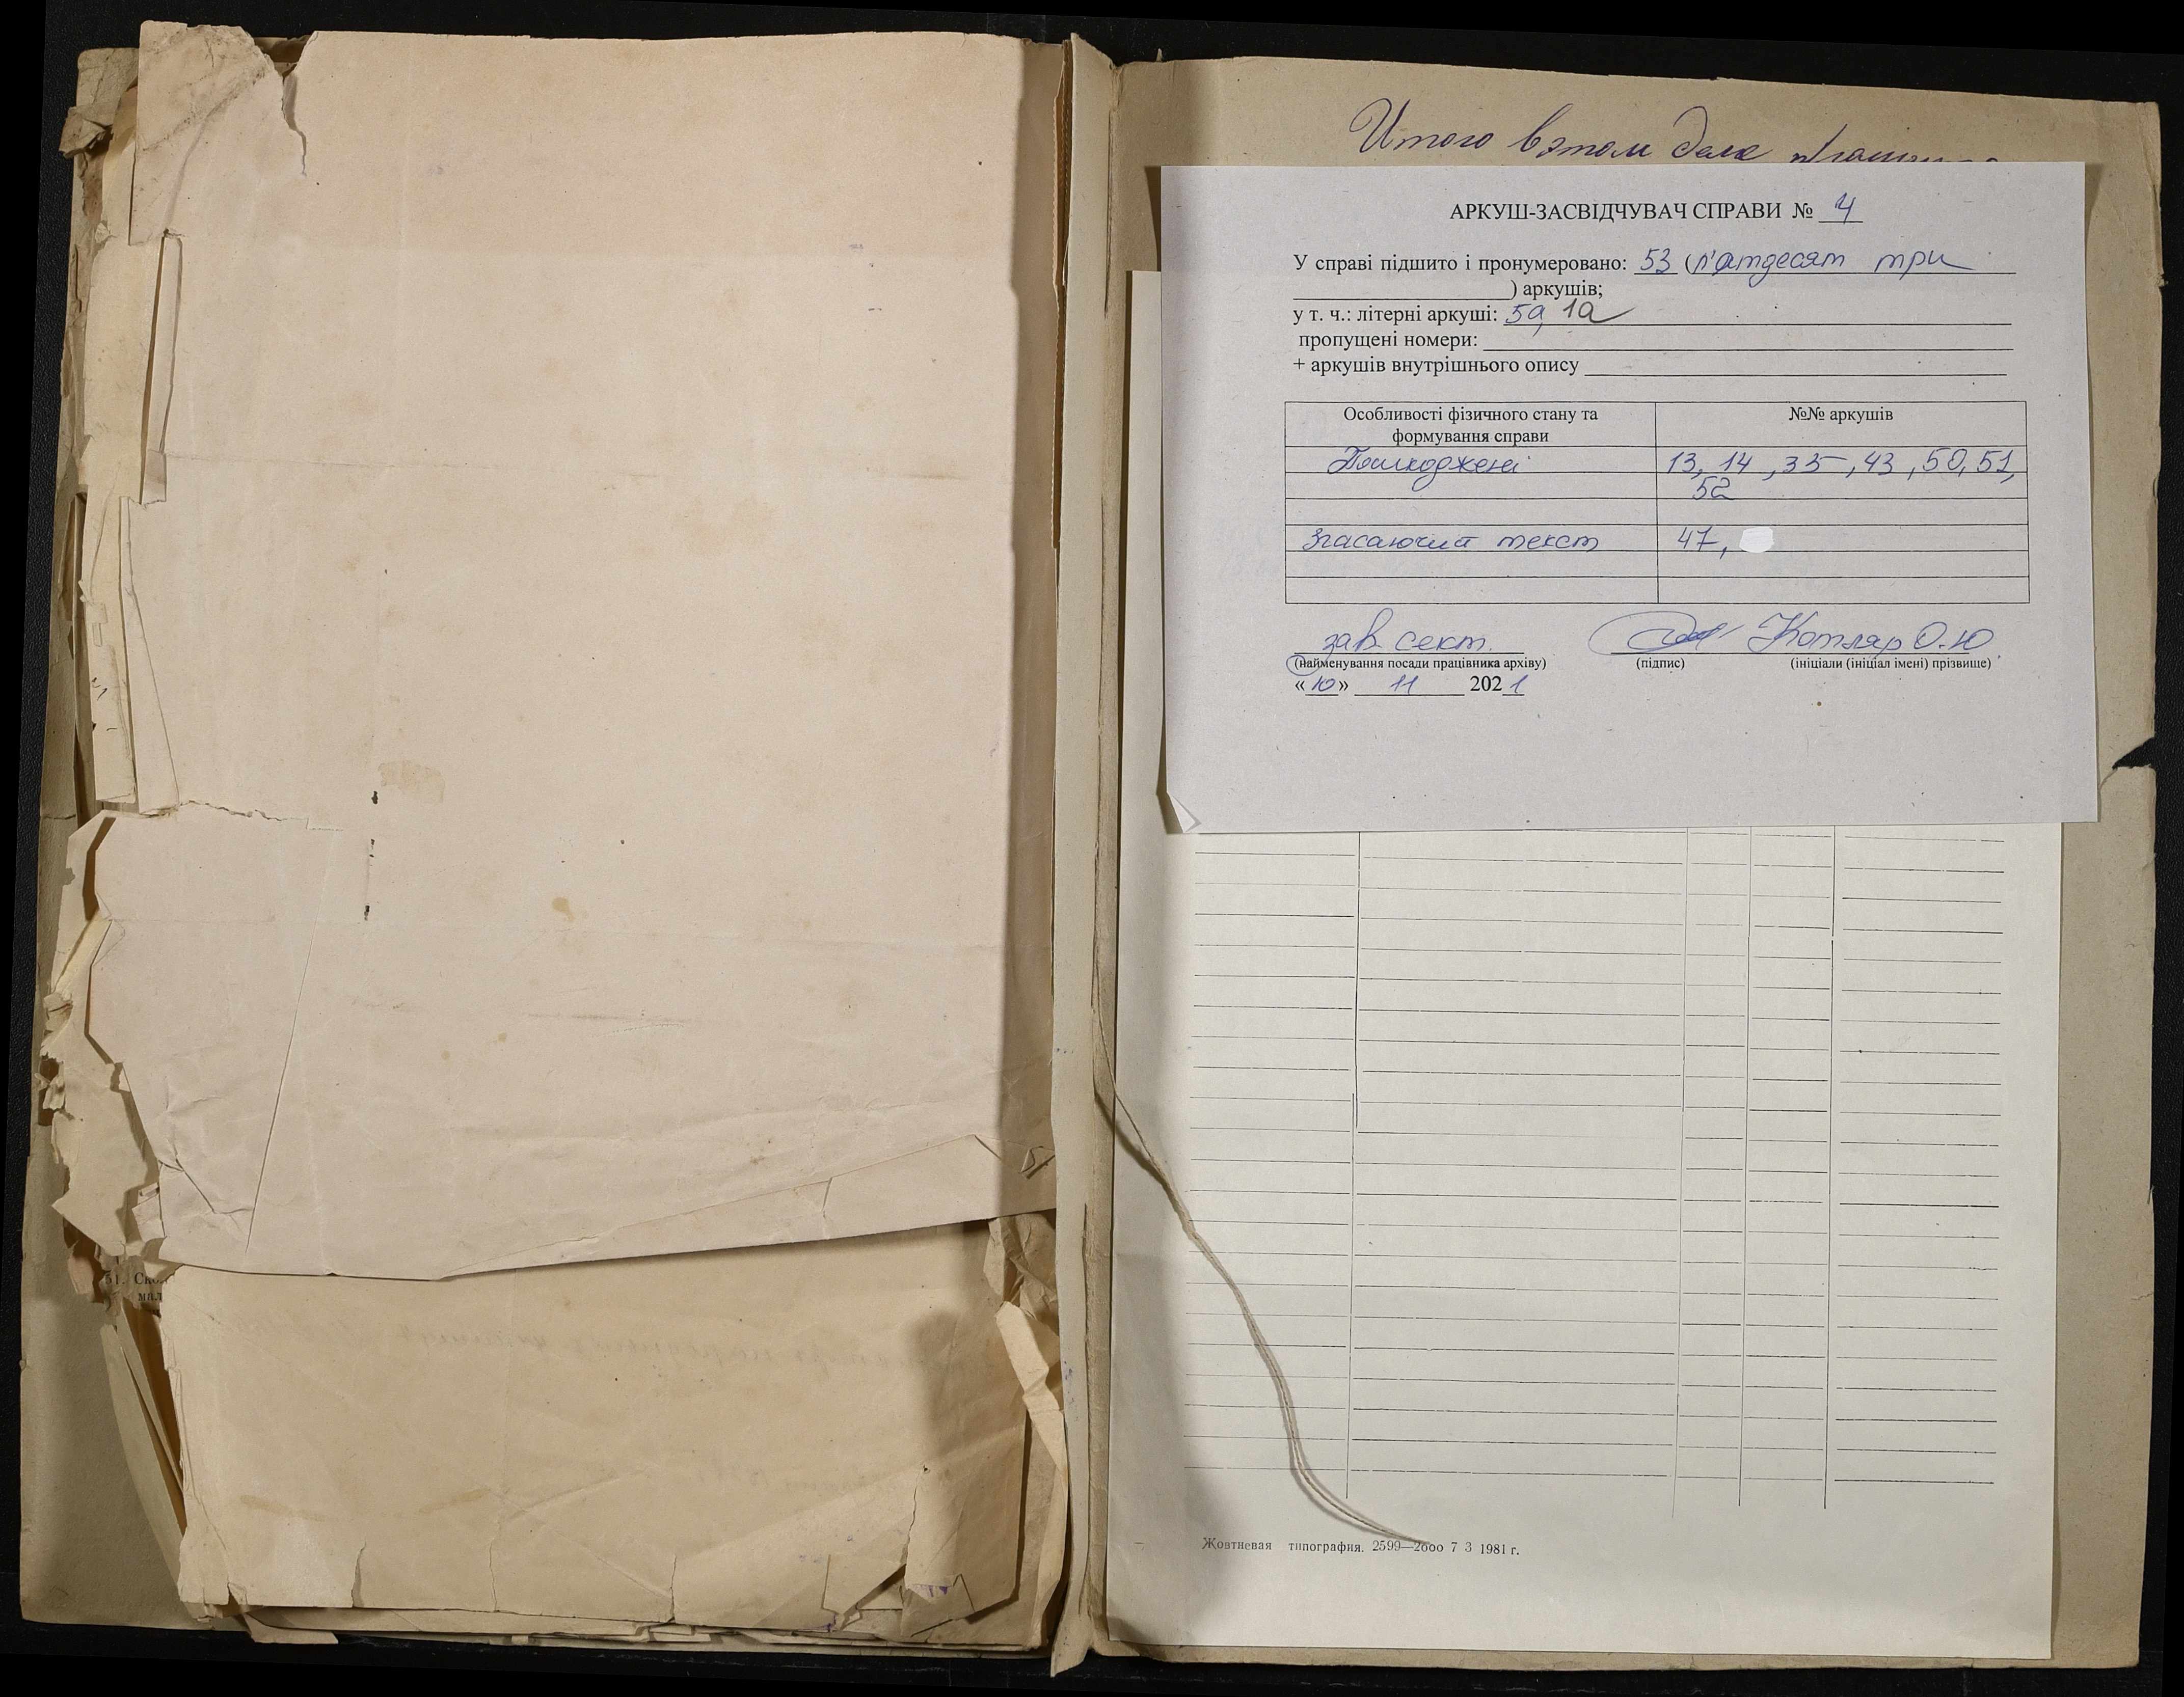 Итого в этом деле
АРКУШ-ЗАСВІДЧУВАЧ СПРАВИ № 4
У справі підшито і пронумеровано: 53 (п'ятдесят три
) аркушів;
у т. ч.: літерні аркуші: 5а, 1а
пропущені номери:
+ аркушів внутрішнього опису
Особливості фізичного стану та формування справи
№№ аркушів
Пошкоджені 13, 14, 35, 43, 50, 51,
52
Згасаючий текст 47,
зав. сект. Котляр О.Ю
(найменування посади працівника архіву) (підпис) (ініціали (ініціал імені) прізвище)
«10» 11 2021
51.
Жовтневая типография. 2599—2000 7 3 1981 г.